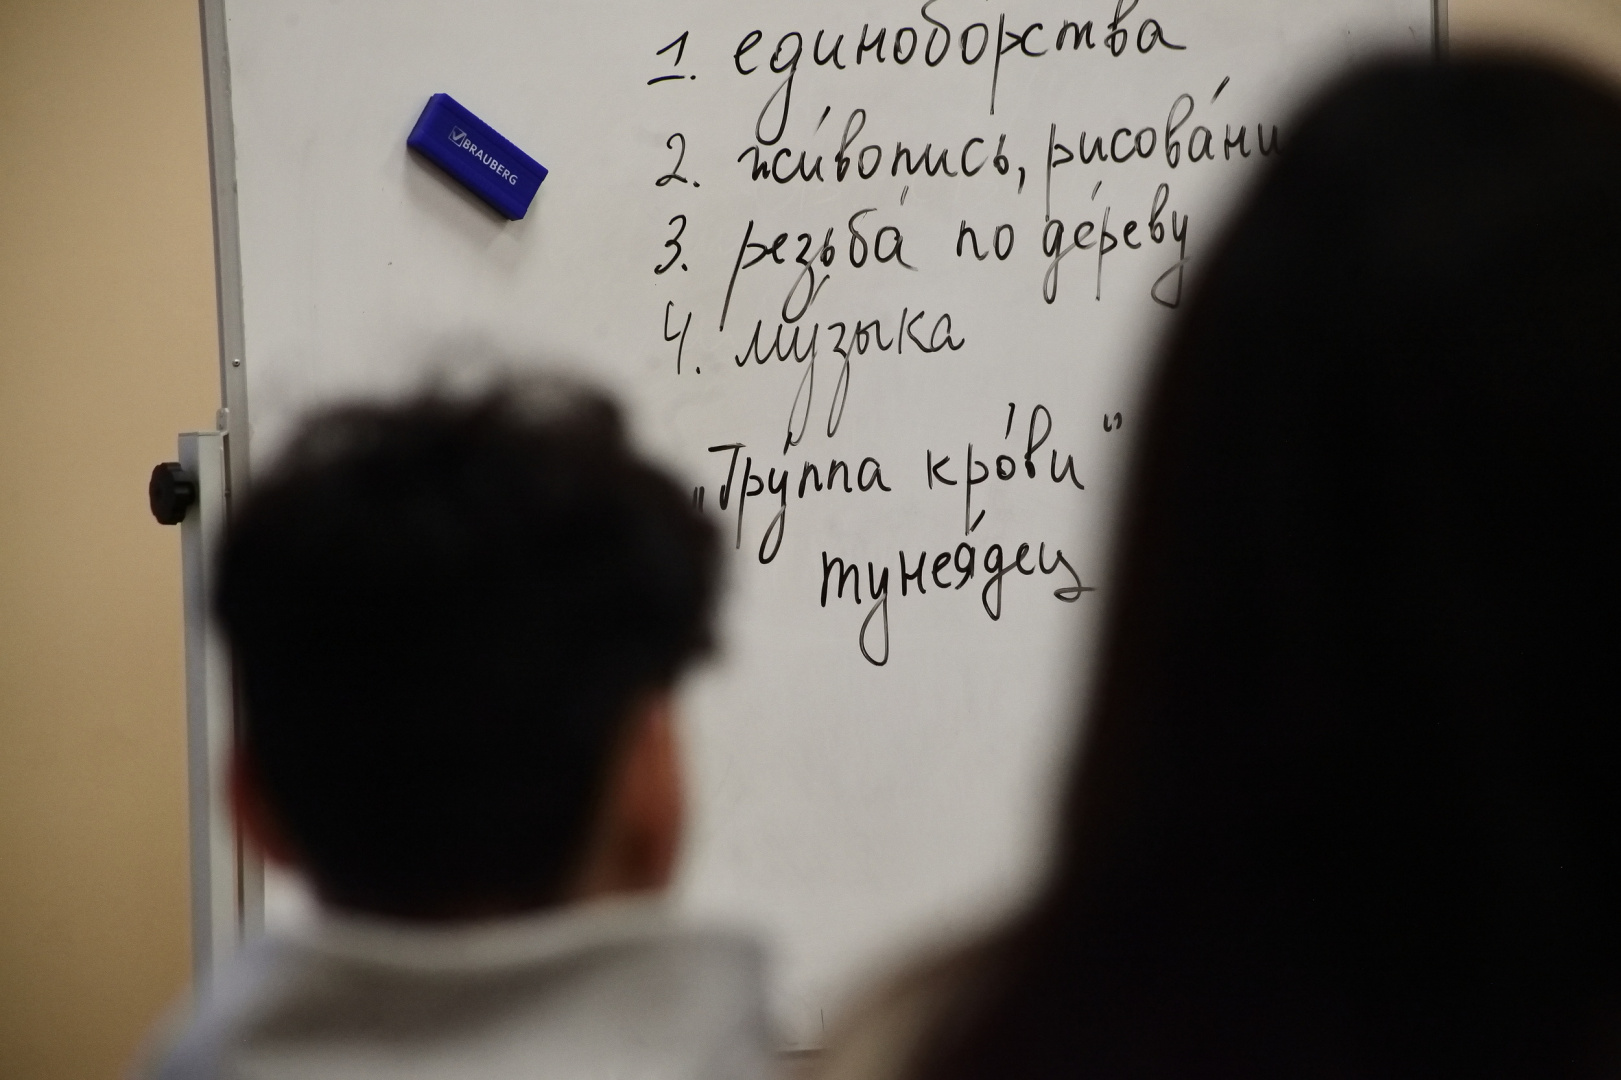 BRAUBERG
1. единобо́рства
2. жи́вопись,
3. резьба́ по де́реву
4. му́зыка
„Гру́ппа кро́ви“
тунея́дец